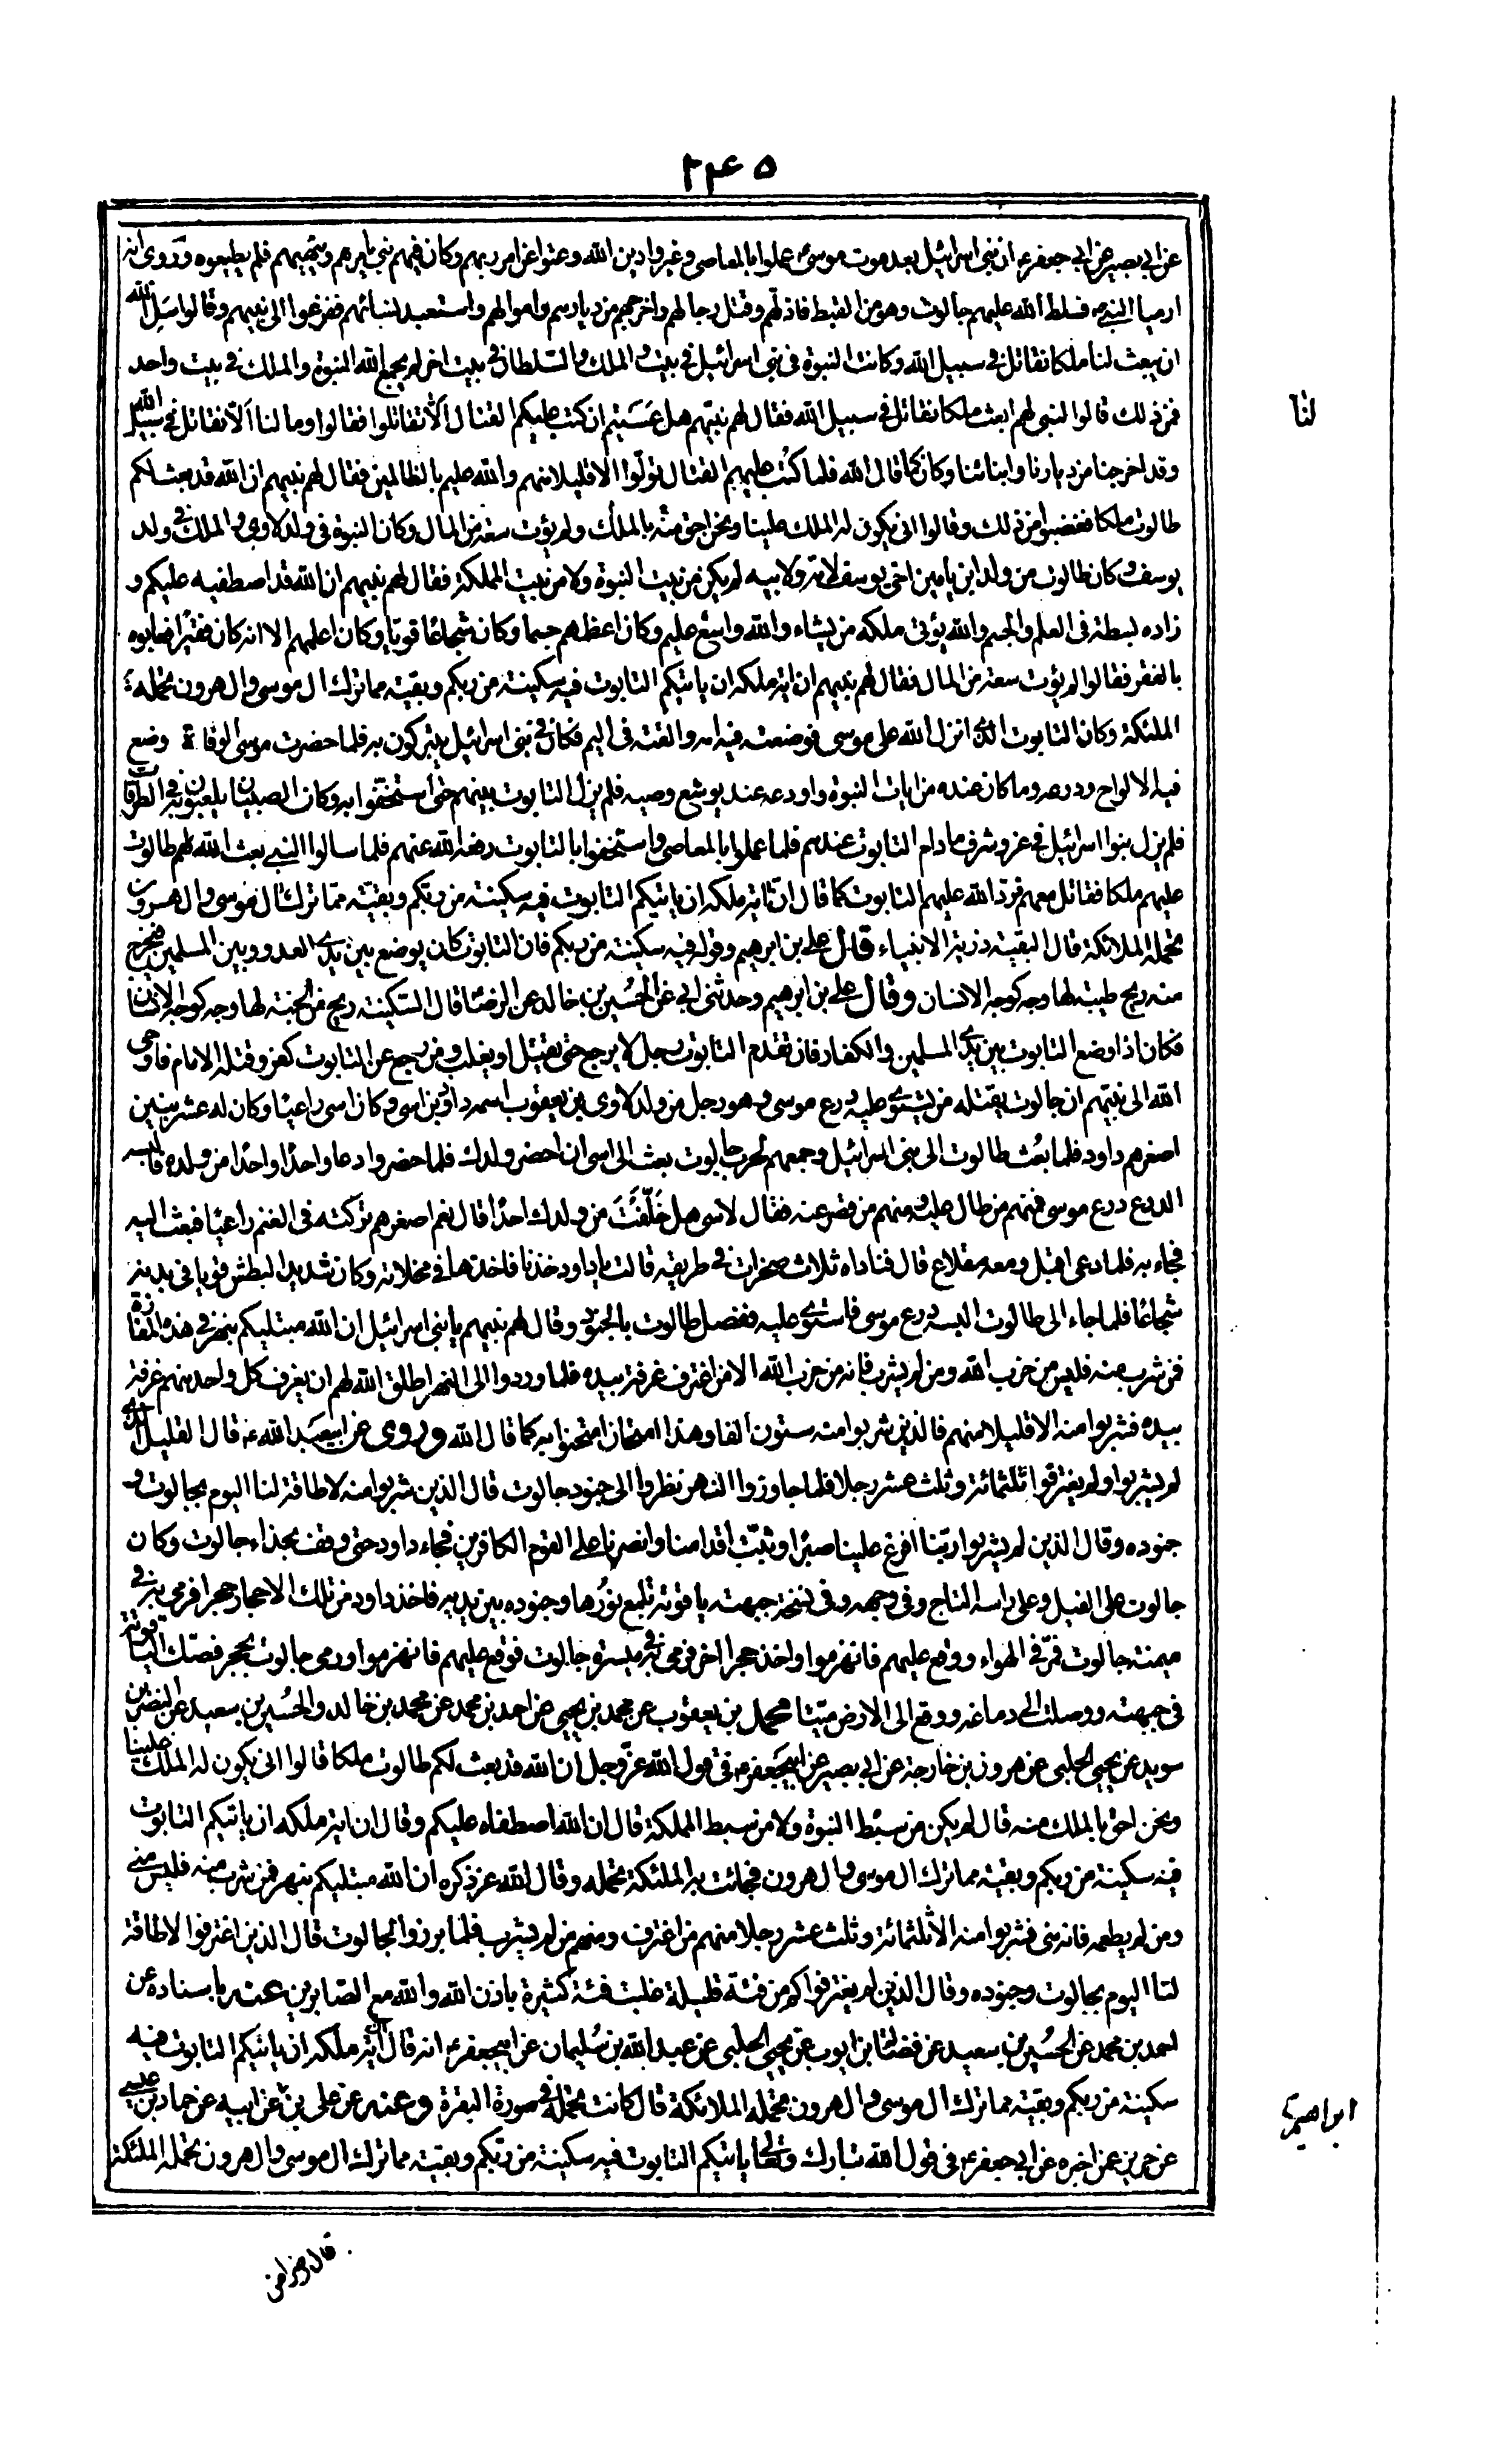 ٢٤٥
عن ابي بصير عن ابي جعفر ع ان بني اسرائيل بعد موت موسى ع عملوا بالمعاصي وغيروا دين الله وعتوا عن امر ربهم وكان فيهم نبي يامرهم وينهيهم فلم يطيعوه وروى انه
ارميا النبي ع فسلط الله عليهم جالوت وهو من القبط فاذلهم وقتل رجالهم واخرجهم من ديارهم واموالهم واستعبد نسائهم ففزعوا الى نبيهم وقالوا سل الله
ان يبعث لنا ملكا نقاتل في سبيل الله وكانت النبوة في بني اسرائيل في بيت والملك والسلطان في بيت اخر لم يجمع الله النبوة والملك في بيت واحد
فمن ذلك قالوا لنبي لهم ابعث ملكا نقاتل في سبيل الله فقال لهم نبيهم هل عَسَيتم ان كتب عليكم القتال ألّا تقاتلوا فقالوا وما لنا ألّا نقاتل في سبيل الله
لنا
وقد اخرجنا من ديارنا وابنائنا وكان كما قال الله فلما كتب عليهم القتال تولّوا الا قليلا منهم والله عليم بالظالمين فقال لهم نبيهم ان الله قد بعث لكم
طالوت ملكا فغضبوا من ذلك وقالوا انى يكون له الملك علينا ونحن احق منه بالملك ولم يؤت سعة من المال وكان النبوة في ولد لاوي والملك في ولد
يوسف وكان طالوت من ولد ابن يامين اخي يوسف لامه ولابيه لم يكن من بيت النبوة ولا من بيت المملكة فقال لهم نبيهم ان الله قد اصطفيه عليكم و
زاده بسطة في العلم والجسم والله يؤتي ملكه من يشاء والله واسع عليم وكان اعظمهم جسما وكان شجاعًا قويا وكان اعلمهم الا انه كان فقيرًا فعابوه
بالفقر فقالوا لم يؤت سعة من المال فقال لهم نبيهم ان اية ملكه ان ياتيكم التابوت فيه سكينة من ربكم وبقية مما ترك ال موسى وال هرون تحمله
الملئكة وكان التابوت الذي انزل الله على موسى فوضعته فيه امه والقته في اليم فكان في بني اسرائيل يتبركون به فلما حضرت موسى الوفاة وضع
فيه الالواح ودرعه وما كان عنده من ايات النبوة واودعه عند يوشع وصيه فلم يزل التابوت بينهم حتى استخفوا به وكان الصبيان يلعبون به في الطرقات
فلم يزل بنوا اسرائيل في عز وشرف ما دام التابوت عندهم فلما عملوا بالمعاصي واستخفوا بالتابوت رفعه الله عنهم فلما سالوا النبي بعث الله لهم طالوت
عليهم ملكا فقاتل معهم فردّ الله عليهم التابوت كما قال انّ اية ملكه ان ياتيكم التابوت فيه سكينة من ربكم وبقيّة ممّا ترك ال موسى وال هرون
تحمله الملائكة قال البقية ذرية الانبياء قال علي بن ابرهيم وقوله فيه سكينة من ربكم فان التابوت كان يوضع بين يدي العدو وبين المسلمين فيخرج
منه ريح طيبة لها وجه كوجه الانسان وقال علي بن ابرهيم وحدثني ابي عن الحسين بن خالد عن الرضا قال السّكينة ريح من الجنة لها وجه كوجه الانسان
فكان اذا وضع التابوت بين يدي المسلمين والكفار فان تقدم التابوت رجل لا يرجع حتى يقتل او يغلب ومن رجع عن التابوت كفر وقتله الامام فاوحى
الله الى نبيّهم ان جالوت يقتله من يستوي عليه درع موسى وهو رجل من ولد لاوى بن يعقوب اسمه داود بن اسى وكان اسى راعيًا وكان له عشر بنين
اصغرهم داود فلما بعث طالوت الى بني اسرائيل وجمعهم لحرب جالوت بعث الى اسى ان احضر ولدك فلما حضروا دعا واحدًا واحدًا من ولده فالبسه
الدرع درع موسى فمنهم من طال عليه ومنهم من قصر عنه فقال لاسى هل خَلَّفْتَ من ولدك احدًا قال نعم اصغرهم تركته في الغنم راعيًا فبعث اليه
فجاء به فلما دعى اقبل ومعه مقلاع قال فناداه ثلاث صخرات في طريقه قالت يا داود خذنا فاخذها في مخلاته وكان شديد البطش قويا في بدنه
شجاعًا فلما جاء الى طالوت البسه درع موسى فاستوى عليه ففصل طالوت بالجنود وقال لهم نبيهم يا بني اسرائيل ان الله مبتليكم بنهر في هذه المفازة
فمن شرب منه فليس من حزب الله ومن لم يشرب فانه من حزب الله الا من اغترف غرفة بيده فلما وردوا الى النهر اطلق الله لهم ان يغرف كل واحد منهم غرفة
بيده فشربوا منه الا قليلا منهم فالذين شربوا منه ستون الفا وهذا امتحان امتحنوا به كما قال الله وروي عن ابيعَبد الله ع قال القليل الذين
لم يشربوا ولم يغترفوا ثلثمائة وثلث عشر رجلا فلما جاوزوا النهر نظروا الى جنود جالوت قال الذين شربوا منه لا طاقة لنا اليوم بجالوت و
جنوده وقال الذين لم يشربوا ربّنا افرغ علينا صبرًا وثبّت اقدامنا وانصرنا على القوم الكافرين فجاء داود حتى وقف بحذاء جالوت وكان
جالوت على الفيل وعلى راسه التاج وفي وجهه وفي نسخة جبهته ياقوتة تلمع نورها وجنوده بين يديه فاخذ داود من تلك الاحجار حجرا فرمى به في
ميمنة جالوت فمرّ في الهواء ووقع عليهم فانهزموا واخذ حجرا اخر فرمى به في ميسرة جالوت فوقع عليهم فانهزموا ورمى جالوت بحجر فصكّ الياقوتة
في جبهته ووصلت الى دماغه ووقع الى الارض ميّتا محمد بن يعقوب عن محمد بن يحيى عن احمد بن محمد عن محمد بن خالد والحسين بن سعيد عن النضر بن
سويد عن يحيى الحلبي عن هرون بن خارجة عن ابي بصير عن ابيجَعفر ع في قول الله عزّ وجل ان الله قد بعث لكم طالوت ملكا قالوا انى يكون له الملك علينا
ونحن احق بالملك منه قال لم يكن من سبط النبوة ولا من سبط المملكة قال ان الله اصطفاه عليكم وقال ان اية ملكه ان ياتيكم التابوت
فيه سكينة من ربكم وبقية مما ترك ال موسى وال هرون فجائت به الملئكة تحمله وقال الله عز ذكره ان الله مبتليكم بنهر فمن شرب منه فليس مني
ومن لم يطعمه فانه مني فشربوا منه الا ثلثمائة وثلث عشر رجلا منهم من اغترف ومنهم من لم يشرب فلما برزوا لجالوت قال الذين اغترفوا لا طاقة
لنا اليوم بجالوت وجنوده وقال الذين لم يغترفوا كم من فئة قليلة غلبت فئة كثيرة باذن الله والله مع الصّابرين عنه باسناده عن
احمد بن محمد عن الحسين بن سعيد عن فضالة بن ايوب عن يحيى الحلبي عن عبد الله بن سُليمان عن ابيجعفر ع انه قال ان اية ملكه ان ياتيكم التابوت فيه
سكينة من ربكم وبقية مما ترك ال موسى وال هرون تحمله الملائكة قال كانت تحمله في صورة البقرة وعنه عن علي بن عن ابيه عن حماد بن عيسى
ابراهيم
عن حريز عن اخبره عن ابي جعفر ع في قول الله تبارك وتعالى ياتيكم التابوت فيه سكينة من ربّكم وبقية مما ترك ال موسى وال هرون تحمله الملئكة